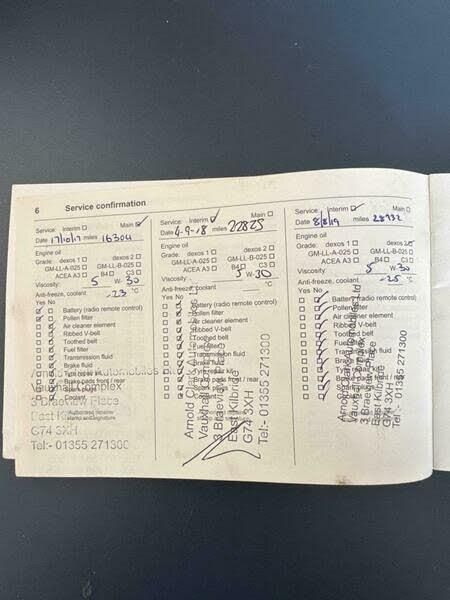 6 Service confirmation
Service: Interim Main
Date 17/10/17 miles 16304
Engine oil
Grade: dexos 1 dexos 2
GM-LL-A-025 GM-LL-B-025
ACEA A3 B4 C3
Viscosity: 5 W- 30
Anti-freeze, coolant -23 °C
Yes No
Battery (radio remote control)
Pollen filter
Air cleaner element
Ribbed V-belt
Toothed belt
Fuel filter
Transmission fluid
Brake fluid
Tyre repair kit
Brake pads front / rear
Spark plugs
Coolant
Arnold Clark Automobiles
Vauxhall Complex
3 Braeview Place
East Kilbride
G74 3XH
Tel:- 01355 271300
Authorised repairer
stamp and signature
Service: Interim Main
Date 4-9-18 miles 22825
Engine oil
Grade: dexos 1 dexos 2
GM-LL-A-025 GM-LL-B-025
ACEA A3 B4 C3
Viscosity: 5 W- 30
Anti-freeze, coolant °C
Yes No
Battery (radio remote control)
Pollen filter
Air cleaner element
Ribbed V-belt
Toothed belt
Fuel filter
Transmission fluid
Brake fluid
Arnold Clark Automobiles
Vauxhall
3 Braeview Place
East Kilbride
G74 3XH
Tel:- 01355 271300
Service: Interim Main
Date 8/8/19 miles 28932
Engine oil
Grade: dexos 1 dexos 2
GM-LL-A-025 GM-LL-B-025
ACEA A3 B4 C3
Viscosity 5 W- 30
Anti-freeze, coolant -25 °C
Yes No
Battery (radio remote control)
Pollen filter
Air cleaner element
Ribbed V-belt
Toothed belt
Arnold Clark Automobiles Ltd
Vauxhall Complex
3 Braeview Place
East Kilbride
G74 3XH
Tel:- 01355 271300